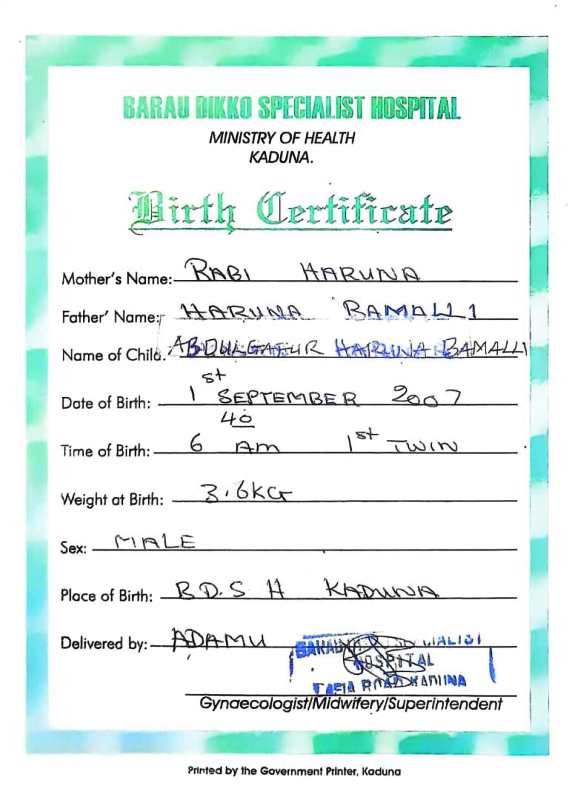 BARAU DIKKO SPECIALIST HOSPITAL
MINISTRY OF HEALTH
KADUNA.
Birth Certificate
Mother's Name: RABI HARUNA
Father' Name: HARUNA BAMALLI
Name of Child. ABDULGAFUR HARUNA BAMALLI
Date of Birth: 1st SEPTEMBER 2007
40
Time of Birth: 6 AM 1st TWIN
Weight at Birth: 3.6KG
Sex: MALE
Place of Birth: B.D.S H KADUNA
Delivered by: ADAMU
HOSPITAL
ROAD KADUNA
Gynaecologist/Midwifery/Superintendent
Printed by the Government Printer, Kaduna